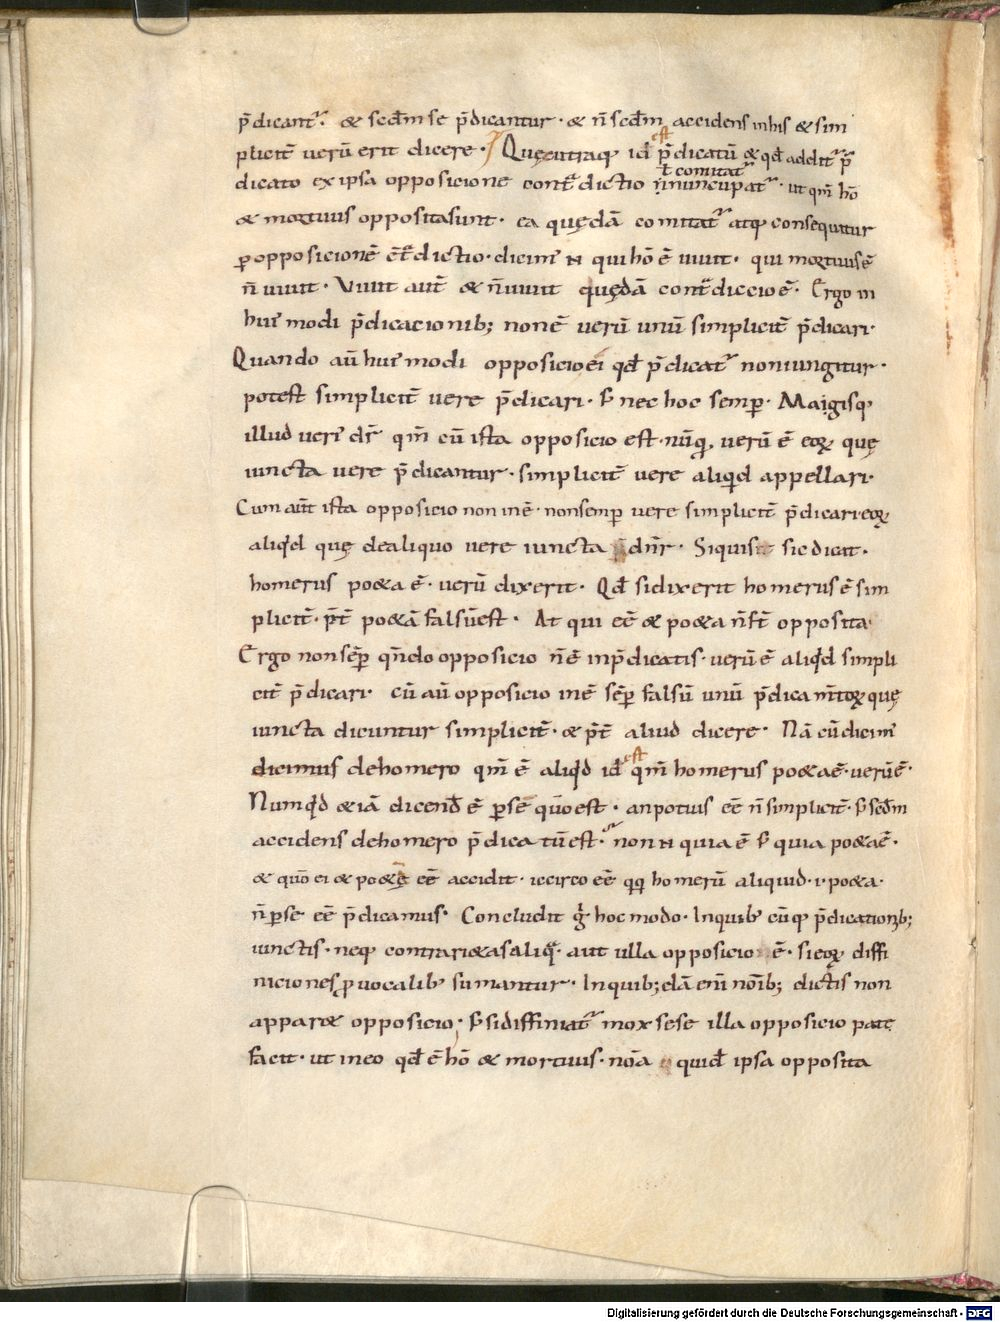 p̄dicant᷑. & scd̄m se p̄dicantur. & n̄ scd̄m accidens in his & sim
plicit̄ verū erit dicere. Quęcūtraq; id̄ est p̄dicatū & qd̄ addit᷑ p̄
dicato ex ipsa opposicione cont̄dictio ł comitat᷑ nnuncupat᷑. ut qm̄ hō
& mortuus opposita sunt. ea quędā comitat᷑ atq; consequatur
ꝑ opposicionē c̄t̄dictio. dicim᷒ N qui hō ē vivit. qui mortuus ē
n̄ vivit. Vivit aut̄ & n̄ vivit quędā cont̄diccio ē. Ergo in
hui᷒modi p̄dicacionib; non ē verū unū simplicit̄ p̄dicari.
Quando aū hui᷒modi opposicio ei qd̄ p̄dicat᷑ non iungitur.
potest simplicit̄ vere p̄dicari. s; nec hoc semꝑ. Magisq;
illud veri᷒ dr̄ qm̄ cū ista opposicio est. nūq. verū ē eoꝝ quę
iuncta vere p̄dicantur. simplicit̄ vere aliqid appellari.
Cum aūt ista opposicio non inē. non semꝑ vere simplicit̄ p̄dicari. eoꝝ
aliq'd quę de aliquo vere iuncta dn̄r. Si quis sic dicit.
homerus po&a ē. verū dixerit. Qd̄ si dixerit homerus ē sim
plicit̄. p̄t̄ po&ā falsū est. At qui eē & po&a n̄ st̄ opposita.
Ergo non sēꝑ qn̄do opposicio n̄ ē in p̄dicatis. verū ē aliq'd simpli
cit̄ p̄dicari. cū aū opposicio inē sēꝑ falsū unū p̄dicam̄toꝝ quę
iuncta dicuntur simplicit̄. & p̄t̄ aliud dicere. Nā cū dicim᷒
dicimus de homero qm̄ ē aliq'd id̄ est qm̄ homerus po&a ē. verū ē.
Numq'd & iā dicend̄ ē ꝑ se qūo est. an potius eē n̄ simplicit̄. s; scd̄m
accidens de homero p̄dicatū est. non N quia ē s; quia po&a ē.
& quō ei & po&ę eē accidit. iccirco eē qq homerū aliquid. i. po&a.
n̄ ꝑ se eē p̄dicamus. Concludit g̊ hoc modo. In quib᷒ cūq; p̄dicationib;
iunctis. neq; contrari&as aliq̄. aut ulla opposicio ē. si eoꝝ diffi
niciones ꝓ vocalib᷒ sumantur. In quib;dā eni nōib; dictis non
appar& opposicio. s; si diffiniat᷑ mox sese illa opposicio pate
facit. ut in eo qd̄ ē hō & mortuus. nōa quid̄ ipsa opposita
Digitalisierung gefördert durch die Deutsche Forschungsgemeinschaft - DFG